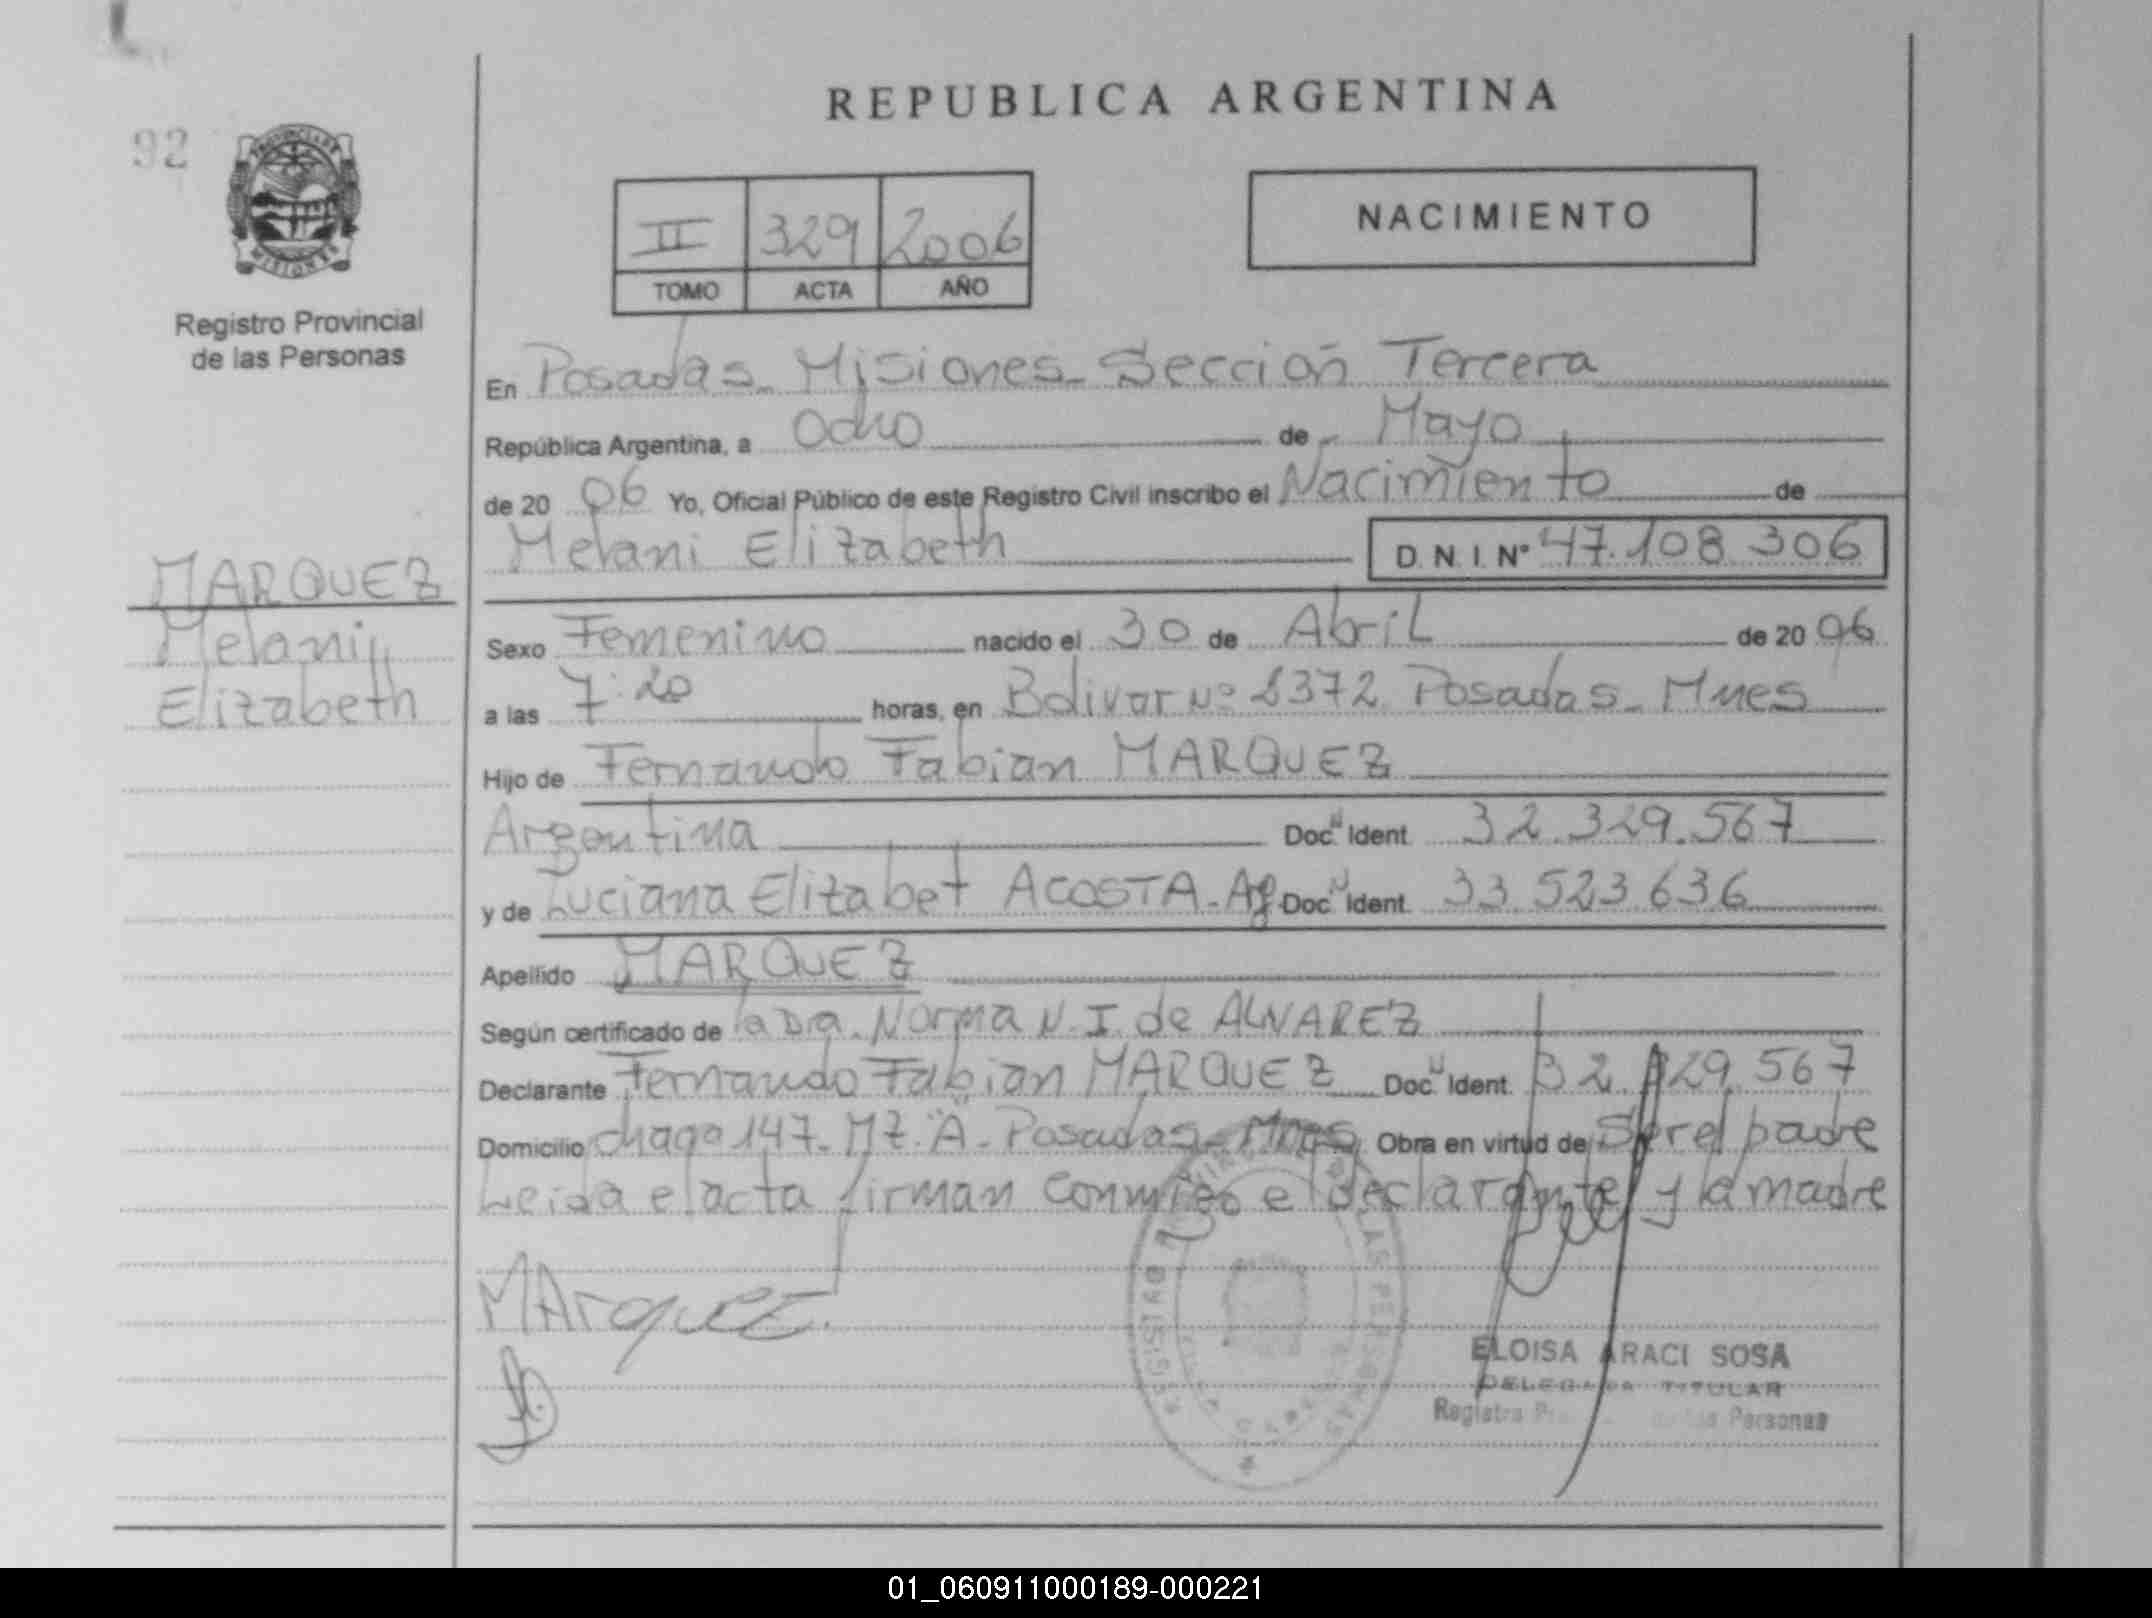 REPUBLICA ARGENTINA
92
PROVINCIA DE MISIONES
Registro Provincial
de las Personas
II 329 2006
TOMO ACTA AÑO
NACIMIENTO
En Posadas - Misiones - Sección Tercera
República Argentina, a Ocho de Mayo
de 20 06 Yo, Oficial Público de este Registro Civil inscribo el Nacimiento de
Melani Elizabeth D. N. I. N° 47.108.306
MARQUEZ
Melani
Elizabeth
Sexo Femenino nacido el 30 de Abril de 20 06
a las 7:20 horas, en Bolivar Nº 2372 Posadas - Mnes
Hijo de Fernando Fabian MARQUEZ
Argentina Doc. N Ident. 32.329.567
y de Luciana Elizabet ACOSTA - Ag Doc. N Ident. 33.523.636
Apellido MARQUEZ
Según certificado de la Dra. Norma N. I. de ALVAREZ
Declarante Fernando Fabian MARQUEZ Doc. N Ident. 32.329.567
Domicilio chaga 147 - MZ. "A" - Posadas - Mnes Obra en virtud de Ser el padre
Leida el acta firman conmigo el declarante y la madre
MArqueZ.
ELOISA ARACI SOSA
DELEGADA TITULAR
Registro Personas
01_060911000189-000221